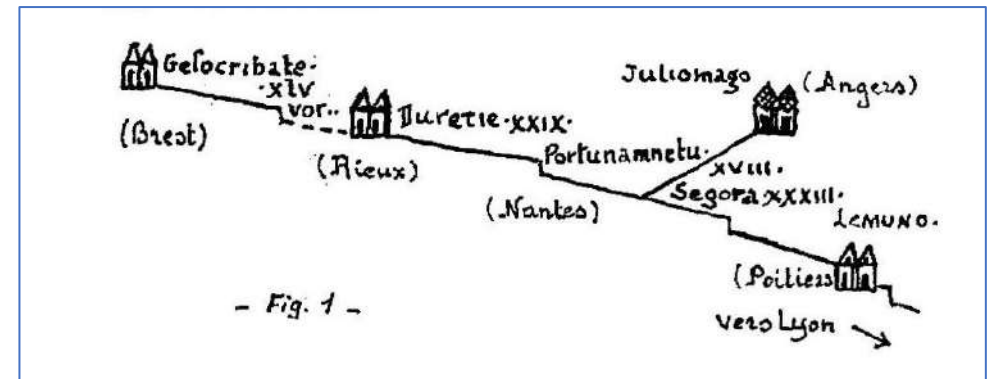 Gesocribate.
.xlv
vor..
(Brest)
Duretie.xxix.
(Rieux)
Portunamnetu.
(Nantes)
Juliomago
(Angers)
xviii.
Segora xxxiii.
Lemuno.
(Poitiers
vers Lyon
- Fig. 1 -